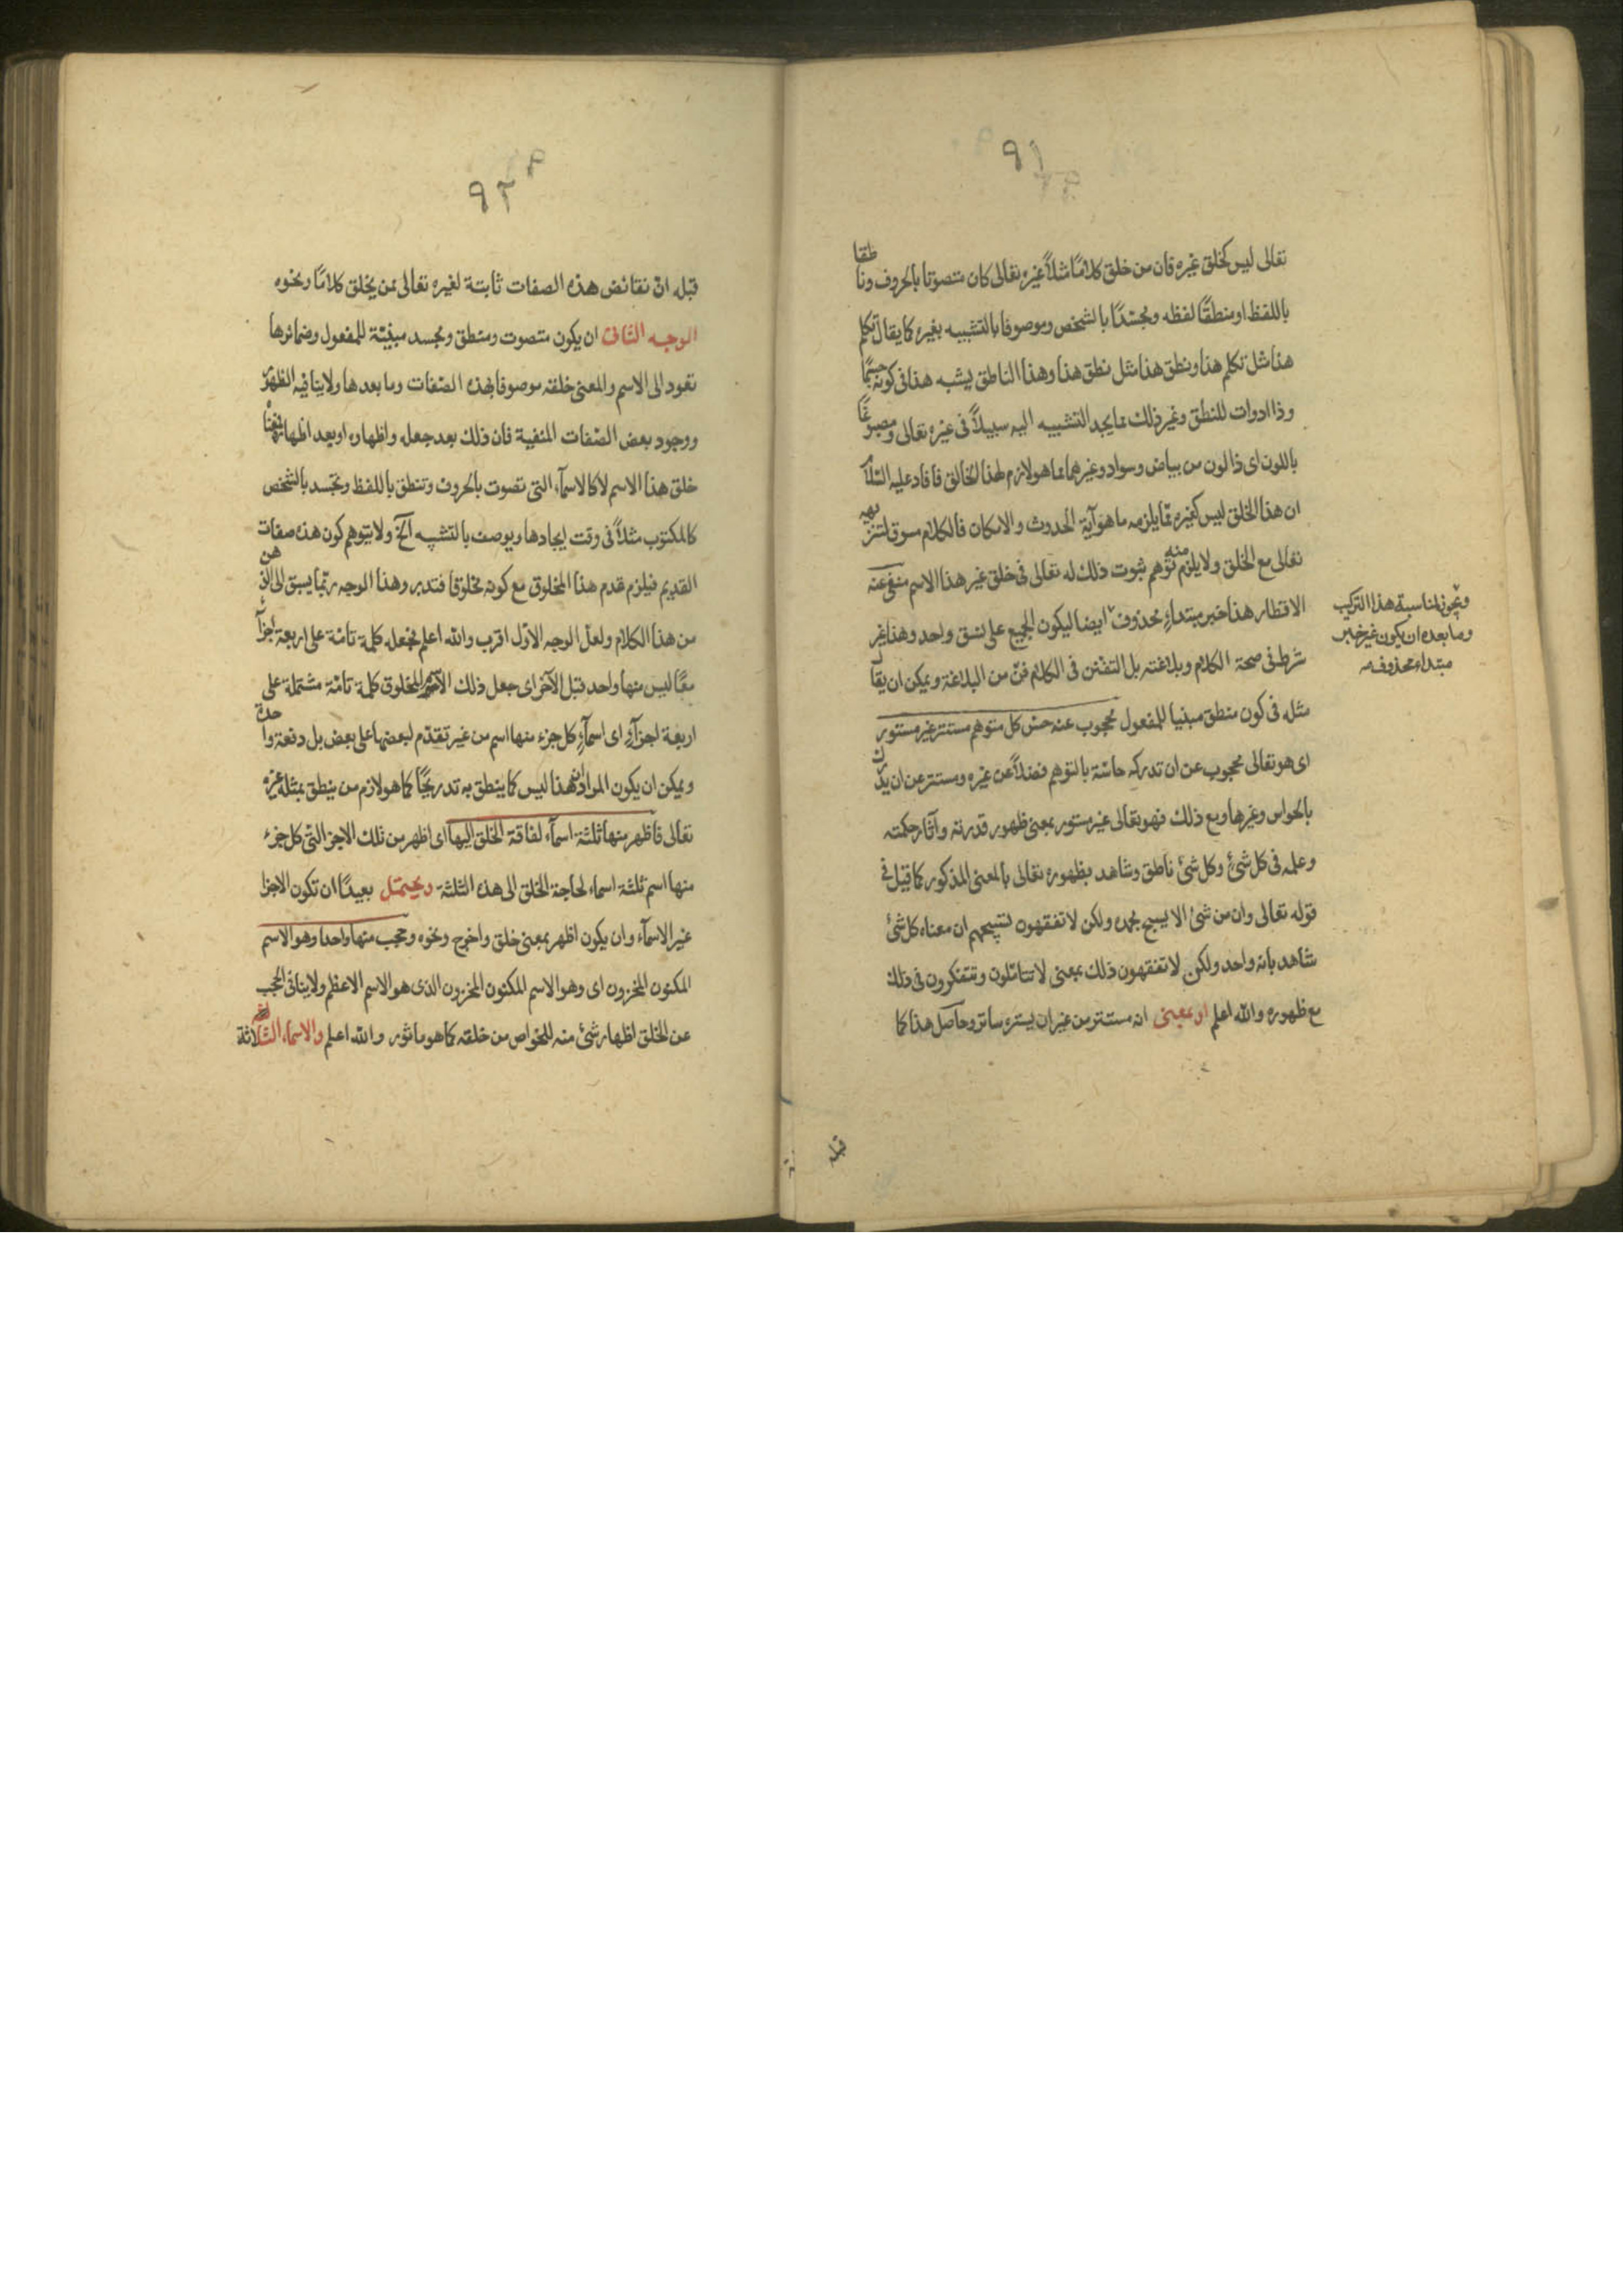 ٩١
تعالى ليس كخلق غيره فان من خلق كلاما مثلاً غيره تعالى كان متصوتا بالحروف وناطقا
باللفظ او منطقًا لفظه ومجسّدًا بالشخص وموصوفا بالتشبيه بغيره كما يقال تكلم
هذا مثل تكلم هذا ونطق هذا مثل نطق هذا وهذا الناطق يشبه هذا فى كونه جسمًا
وذا ادوات للنطق وغير ذلك مما يجد التشبيه اليه سبيلاً فى غيره تعالى ومصبوغًا
باللون اى ذا لون من بياض وسواد وغيرهما مما هو لازم لهذا الخالق فافاد عليه السّلام
ان هذا الخلق ليس كغيره ممّا يلزمه ما هو آية الحدوث والامكان فالكلام مسوق لتنزيهه
تعالى مع الخلق ولا يلزم منه توهم ثبوت ذلك له تعالى فى خلق غير هذا الاسم منفى عنه
الاقطار هذا خبر مبتداءٍ محذوف ايضا ليكون الجميع على نسق واحد وهذا غير
شرط فى صحة الكلام وبلاغته بل التفنن فى الكلام فنّ من البلاغة ويمكن ان يقال
مثله فى كون منطق مبنيا للمفعول محجوب عنه حسّ كل متوهم مستتر غير مستور
اى هو تعالى محجوب عن ان تدركه حاسّة بالتوهم فضلاً عن غيره ومستتر عن ان يدرك
بالحواس وغيرها ومع ذلك فهو تعالى غير مستور بمعنى ظهور قدرته وآثار حكمته
وعلمه فى كل شئٍ وكل شئ ناطق وشاهد بظهوره تعالى بالمعنى المذكور كما قيل فى
قوله تعالى وان من شئ الا يسبح بحمده ولكن لا تفقهون تسبيحهم ان معناه كل شئ
شاهد بانه واحد ولكن لا تفقهون ذلك بمعنى لا تتاملون وتتفكرون فى ذلك
مع ظهوره والله اعلم او بمعنى انه مستتر من غير ان يستره ساتر وحاصل هذا كما
قبله
ويجوز لمناسبة هذا التركيب
وما بعده ان يكون غير خبر
مبتداء محذوف منه
٩٢
قبله انّ نقائض هذه الصفات ثابتة لغيره تعالى ممن يخلق كلامًا ونحوه
الوجه الثانى ان يكون متصوت ومنطق ومجسد مبنيّة للمفعول وضمائرها
تعود الى الاسم والمعنى خلقه موصوفا بهذه الصّفات وما بعدها ولا ينافيه
ووجود بعض الصّفات المنفية فان ذلك بعد جعله واظهاره او بعد اظهار
خلق هذا الاسم لا كالاسمآء التى تصوت بالحروف وتنطق باللفظ وتجسد بالشخص
كالمكتوب مثلاً فى وقت ايجادها ويوصف بالتشبيه آلخ ولا يتوهم كون هذه صفات
القديم فيلزم قدم هذا المخلوق مع كونه مخلوقا فتدبر وهذا الوجه ربّما يسبق الى الذهن
من هذا الكلام ولعلّ الوجه الاوّل اقرب والله اعلم فجعله كلمة تامّة على اربعة اجزآء
معًا ليس منها واحد قبل الآخر اى جعل ذلك الاسم المخلوق كلمة تامّة مشتملة على
اربعة اجزآءٍ اى اسمآءٍ كل جزء منها اسم من غير تقدّم لبعضها على بعض بل دفعة واحدة
ويمكن ان يكون المراد ان هذا ليس كما ينطق به تدريجًا كما هو لازم من ينطق بمثله غيره
تعالى فاظهر منها ثلثة اسمآء لفاقة الخلق اليها اى اظهر من تلك الاجزا التى كل جزء
منها اسم ثلثة اسماء لحاجة الخلق الى هذه الثلثة ويحتمل بعيدًا ان تكون الاجزا
غير الاسمآء وان يكون اظهر بمعنى خلق واخرج ونحوه وحجب منها واحدا وهو الاسم
المكنون المخزون اى وهو الاسم المكنون المخزون الذى هو الاسم الاعظم ولا ينافى الحجب
عن الخلق اظهار شئ منه للخواص من خلقه كما هو ماثور والله اعلم والاسماء الثلاثة